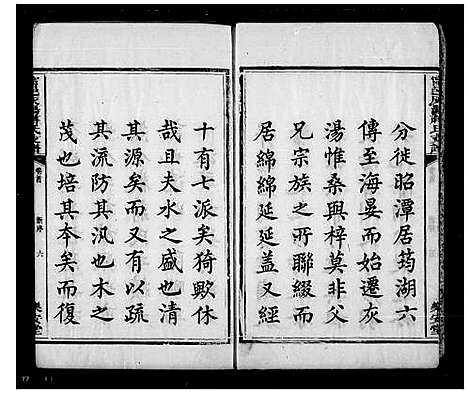 分徙昭潭居筠湖六
傳至海晏而始遷灰
湯惟桑與梓莫非父
兄宗族之所聯綴而
居綿綿延延蓋又經
十有七派矣猗歟休
哉且夫水之盛也清
其源矣而又有以疏
其流防其汎也木之
茂也培其本矣而復
卷首
新序
六
樂安堂